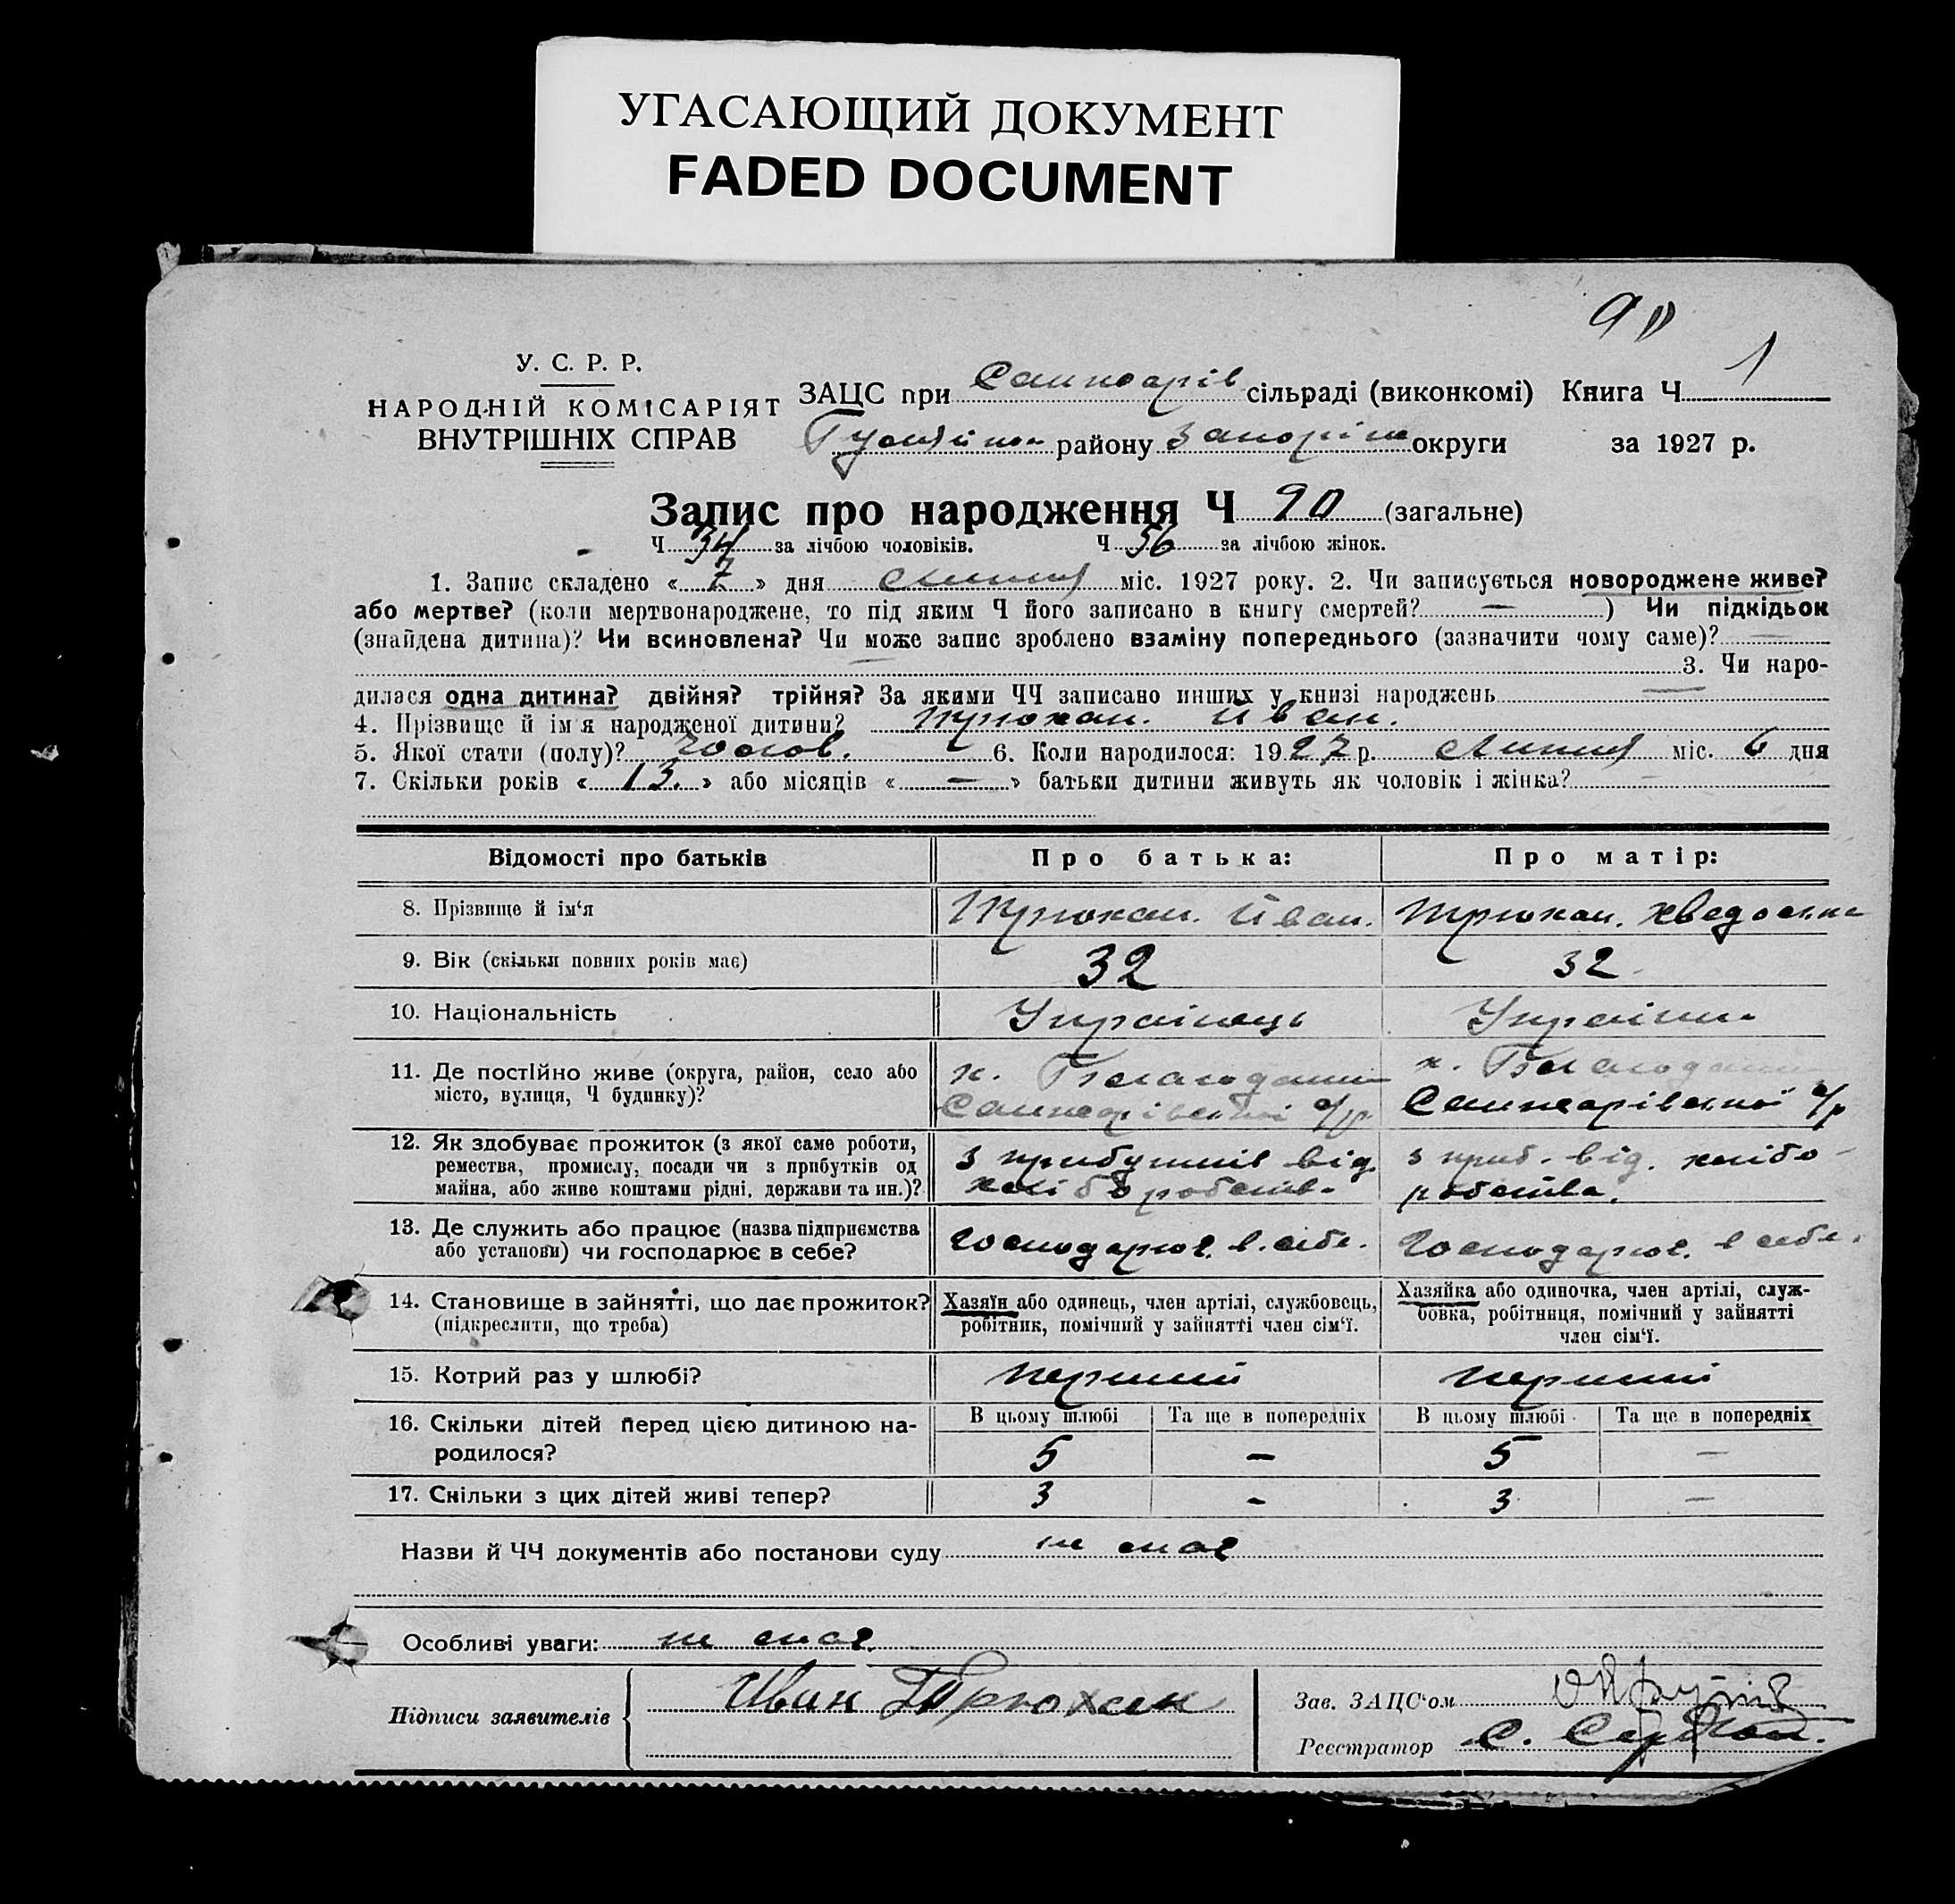 УГАСАЮЩИЙ ДОКУМЕНТ
FADED DOCUMENT
90
У. С. Р. Р.
НАРОДНІЙ КОМІСАРІЯТ
ВНУТРІШНІХ СПРАВ
ЗАЦС при Санжарів сільраді (виконкомі) Книга Ч. 1
району Запоріж округи за 1927 р.
Запис про народження Ч 90 (загальне)
Ч 34 за лічбою чоловіків. Ч 56 за лічбою жінок.
1. Запис складено « 7 » дня Липня міс. 1927 року. 2. Чи записується новороджене живе?
або мертве? (коли мертвонароджене, то під яким Ч його записано в книгу смертей? — ) Чи підкідьок
(знайдена дитина)? Чи всиновлена? Чи може запис зроблено взаміну попереднього (зазначити чому саме)? —
— 3. Чи наро-
дилася одна дитина? двійня? трійня? За якими ЧЧ записано инших у книзі народжень —
4. Прізвище й ім'я народженої дитини? Трюхан. Йван.
5. Якої стати (полу)? Чолов. 6. Коли народилося: 1927 р. Липня міс. 6 дня
7. Скільки років « 13. » або місяців « — » батьки дитини живуть як чоловік і жінка? —
Відомості про батьків Про батька: Про матір:
8. Прізвище й ім'я Трюхан. Йван. Трюхан. Хведоська
9. Вік (скільки повних років має) 32 32
10. Національність Українець Українка
11. Де постійно живе (округа, район, село або х. х.
місто, вулиця, Ч будинку)? Санжарівської с/р Санжарівської с/р
12. Як здобуває прожиток (з якої саме роботи, з прибутків від з приб. від. хлібо-
ремества, промислу, посади чи з прибутків од хліборобств. робства.
майна, або живе коштами рідні, держави та ин.)?
13. Де служить або працює (назва підприємства Господарює. в. себе. Господарює. в себе.
або установи) чи господарює в себе?
14. Становище в зайнятті, що дає прожиток? Хазяїн або одинець, член артілі, службовець, Хазяйка або одиночка, член артілі, служ-
(підкреслити, що треба) робітник, помічний у зайнятті член сім'ї. бовка, робітниця, помічний у зайнятті
член сім'ї.
15. Котрий раз у шлюбі? перший перший
16. Скільки дітей перед цією дитиною на- В цьому шлюбі Та ще в попередніх В цьому шлюбі Та ще в попередніх
родилося? 5 — 5 —
17. Скільки з цих дітей живі тепер? 3 - 3 —
Назви й ЧЧ документів або постанови суду не має
Особливі уваги: не має.
Підписи заявителів Иван Трюхан Зав. ЗАЦС'ом
Реєстратор С.